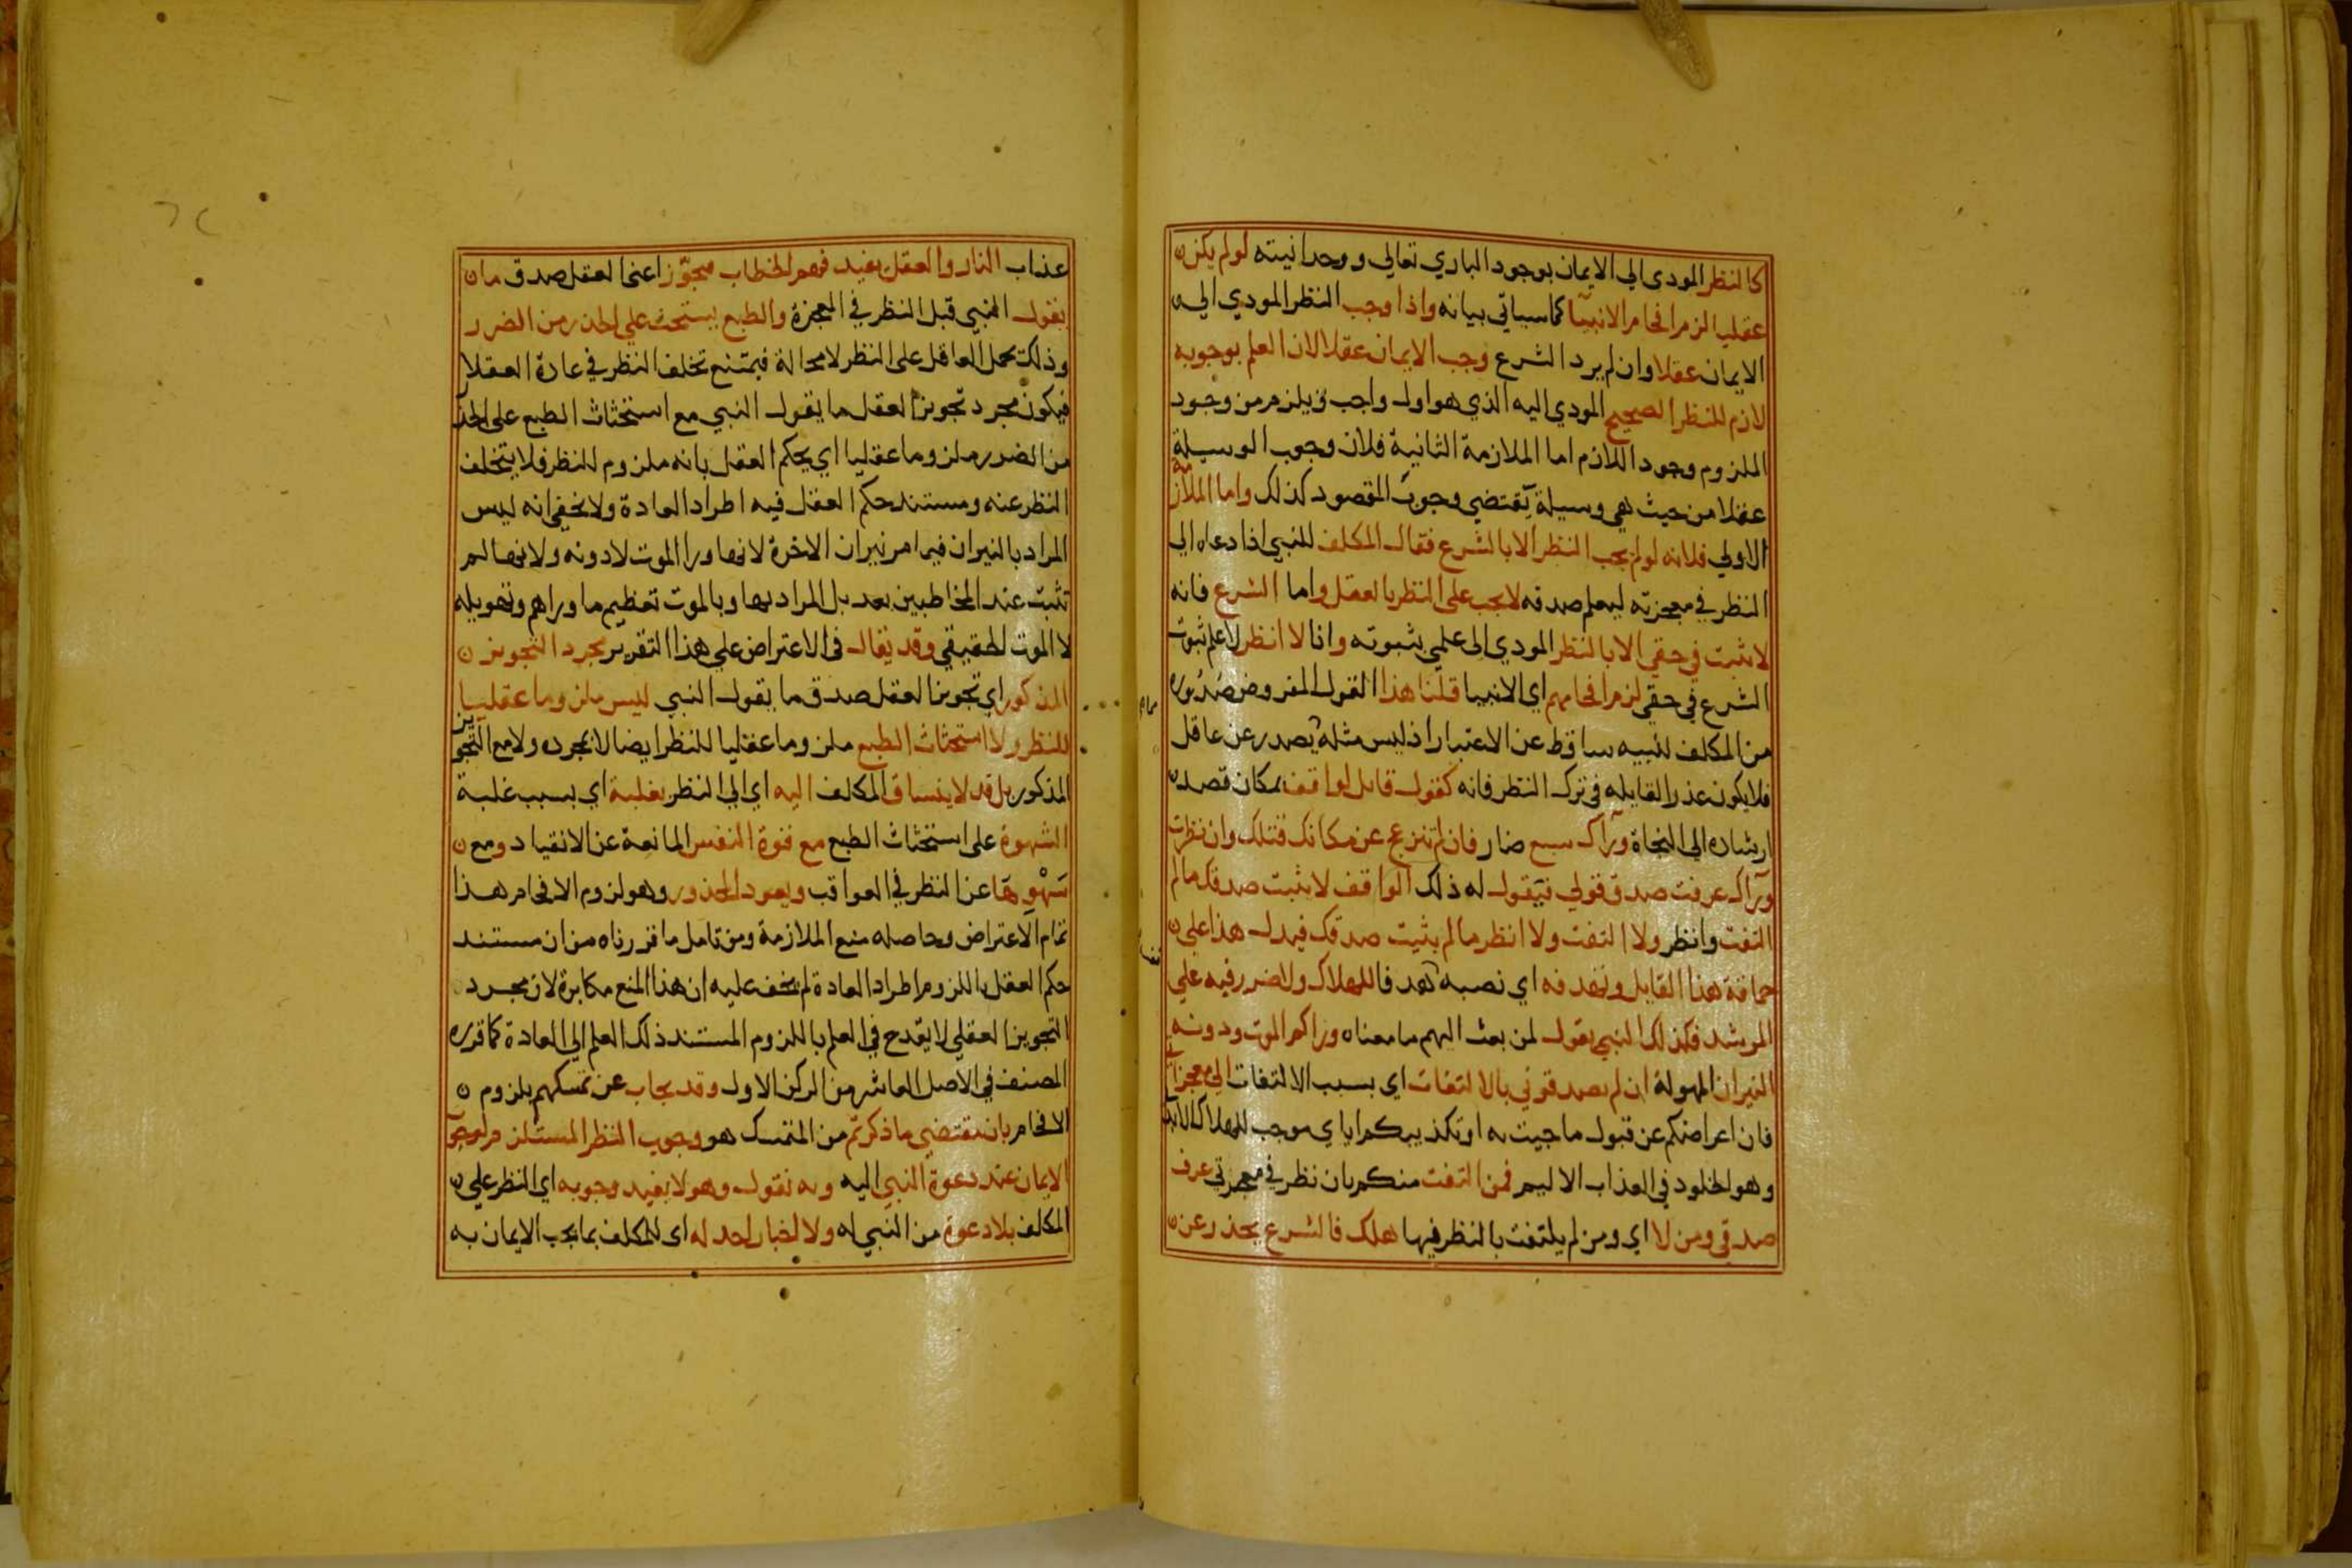 كالنظر المودى الى الايمان بوجود الباري تعالى ووحدانيته لو لم يكن
عقليا لزم افحام الانبيا كما سياتي بيانه واذا وجب النظر المودي الى
الايمان عقلا وان لم يرد الشرع وجب الايمان عقلا لان العلم بوجوبه
لازم للنظر الصحيح المودي اليه الذي هو اول واجب فيلزم من وجود
الملزوم وجود اللازم اما الملازمة الثانية فلان وجوب الوسيلة
عقلا من حيث هي وسيلة يقتضي وجوب المقصود كذلك واما الملازمة
الاولى فلانه لو لم يجب النظر الا بالشرع فقال المكلف للنبي اذا دعاه الى
النظر في معجزته ليعلم صدقه لا يجب على النظر بالعقل واما الشرع فانه
لا يثبت في حقي الا بالنظر المودي الى علمي بثبوته وانا لا انظر لاعلم ثبوت
الشرع في حقي لزم افحامهم اي الانبيا قلنا هذا القول المفروض صدوره
من المكلف لنبيه ساقط عن الاعتبار اذ ليس مثله يصدر عن عاقل
فلا يكون عذرا لقايله في ترك النظر فانه كقول قايل لواقف بمكان قصد
ارشاده الى النجاة وراك سبع ضار فان لم تنزعج عن مكانك قتلك وان نظرت
وراك عرفت صدق قولي فيقول له ذلك الواقف لا يثبت صدقك ما لم
التفت وانظر ولا التفت ولا انظر ما لم يثبت صدقك فيدل هذا على
حماقة هذا القايل وتهدفه اي نصبه هدفا للهلاك ولا ضرر فيه على
المرشد فكذلك النبي يقول لمن بعث اليهم ما معناه وراكم الموت ودونه
النيران المهولة ان لم تصدقوني بالالتفات اي بسبب الالتفات الى معجزاتي
فان اعراضكم عن قبول ما جيت به او تكذيبكم اياي موجب للهلاك الابد
وهو الخلود في العذاب الاليم فمن التفت منكم بان نظر في معجزتي عرف
صدقي ومن لا اي ومن لم يلتفت بالنظر فيها هلك فالشرع يحذر عن
عذاب النار والعقل يفيد فهم الخطاب مجوزا عنى العقل صدق ما
يقول النبي قبل النظر في المعجزة والطبع يستحث على الحذر من الضرر
وذلك يحمل العاقل على النظر لا محالة فيمتنع تخلف النظر في عادة العقلا
فيكون مجرد تجويز العقل ما يقول النبي مع استحثاث الطبع على الحذر
من الضرر ملزوما عقليا اي يحكم العقل بانه ملزوم للنظر فلا يتخلف
النظر عنه ومستند حكم العقل فيه اطراد العادة ولا يخفى انه ليس
المراد بالنيران فيما مر نيران الاخرة لانها ورا الموت لا دونه ولانها لم
تثبت عند المخاطبين بعد بل المراد بها وبالموت تعظيم ما وراهم وتهويله
لا الموت الحقيقي وقد يقال في الاعتراض على هذا التقرير مجرد التجويز
المذكور اي تجويز العقل صدق ما يقول النبي ليس ملزوما عقليا
للنظر ولا استحثاث الطبع ملزوما عقليا للنظر ايضا لا بمجرده ولا مع التجويز
المذكور بل قد لا ينساق المكلف اليه اي الى النظر بغلبة اي بسبب غلبة
الشهوة على استحثاث الطبع مع قوة النفس المانعة عن الانقياد ومع
سهوها عن النظر في العواقب ويعود المحذور وهو لزوم الافحام هذا
تمام الاعتراض وحاصله منع الملازمة ومن تامل ما قررناه من ان مستند
حكم العقل باللزوم اطراد العادة لم يخف عليه ان هذا المنع مكابرة لان مجرد
التجويز العقلي لا يقدح في العلم باللزوم المستند ذلك العلم الى العادة كما قرره
المصنف في الاصل العاشر من الركن الاول وقد يجاب عن تمسكهم بلزوم
الافحام بان مقتضى ما ذكرتم من المتمسك هو وجوب النظر المستلزم لوجوب
الايمان عند دعوة النبي اليه وبه نقول وهو لا يفيد وجوبه اي النظر على
المكلف بلا دعوة من النبي له ولا اخبار احد له اى للمكلف بما يجب الايمان به